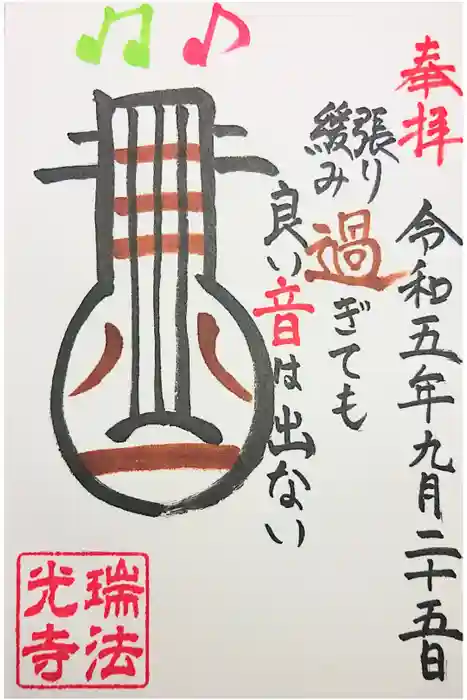 奉拝
令和五年九月二十五日
張り
緩み
過ぎても
良い音は出ない
瑞法
光寺